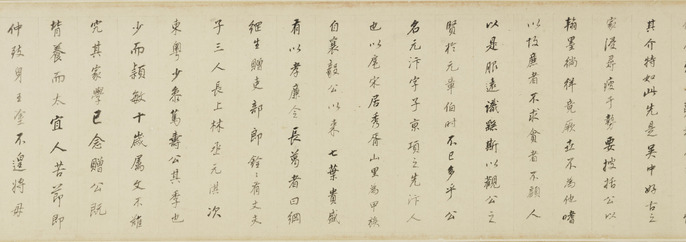 其介特如此先是吳中好古之
家浸尋疲於勢要掊括公以
翰墨徜徉竟厥世不為他嗜
以故廉者不求貪者不顧人
以是服遠識斷以觀公之
賢於元章伯時不已多乎公
名元汴字子京項之先汴人
也以扈宋居秀胥山里為甲族
自襄毅公以來七葉貴盛
有以孝廉令長葛者曰綱
繼生贈吏部郎銓銓有丈夫
子三人長上林丞元淇次
東粵少參篤壽公其季也
少而穎敏十歲屬文不難
究其家學已念贈公既
背養而太宜人苦節即
仲致身王室不遑將母